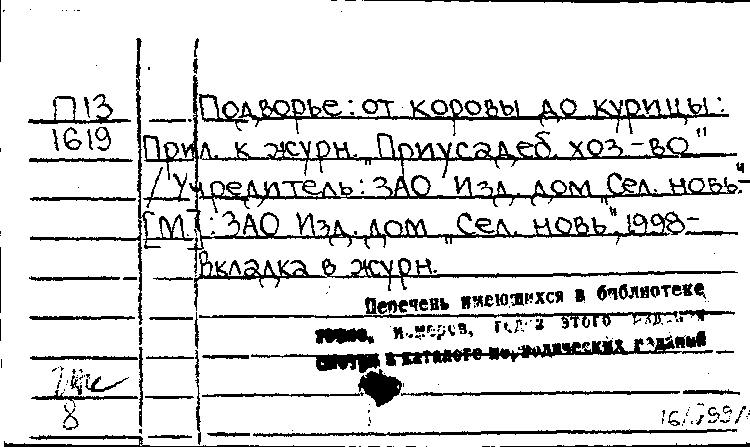 П13 Подворье: от коровы до курицы:
1619 Прил. к журн. „Приусадеб. хоз-во"
/ Учредитель: ЗАО Изд. дом „Сел. новь".-
[М]: ЗАО Изд. дом „Сел. новь", 1998-
Вкладка в журн.
Перечень имеющихся в библиотеке
номеров, этого издания
смотри в каталоге периодических изданий
8